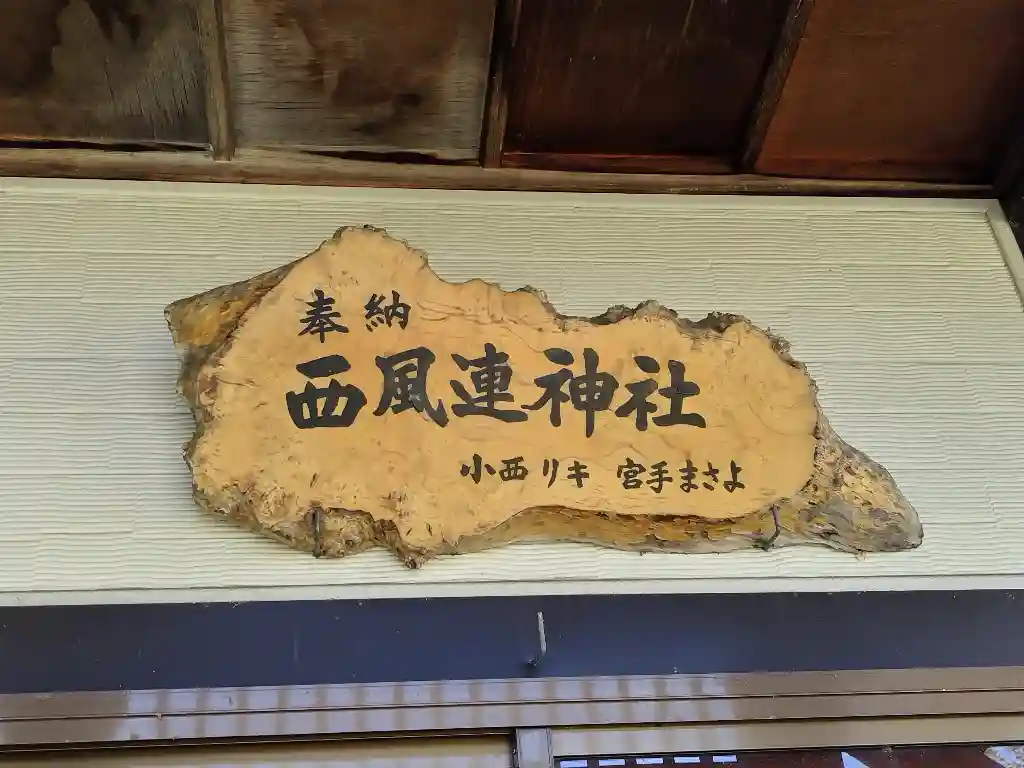 奉納
西風連神社
小西リキ 宮手まさよ